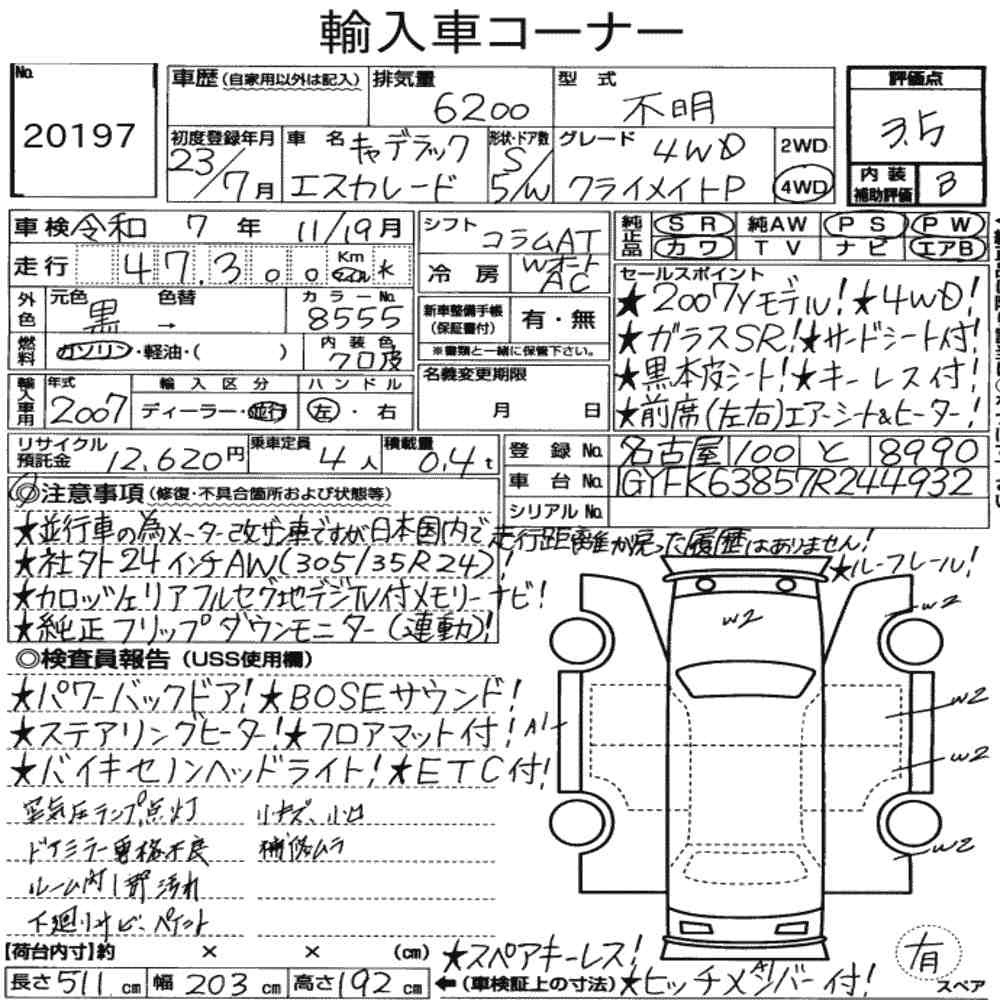 輸入車コーナー
No.
20197
車歴(自家用以外は記入)
排気量
6200
型式
不明
評価点
3.5
初度登録年月
23/7月
車名
キャデラック
エスカレード
形状・ドア数
S/5/W
グレード
4WD
クライメイトP
2WD
4WD
内装
補助評価
B
車検 令和 7年 11/19月
シフト
コラムAT
純正品
SR
純AW
PS
PW
カワ
TV
ナビ
エアB
走行 47,300 Km マイル
冷房
Wオート
AC
セールスポイント
★2007Yモデル!★4WD!
★ガラスSR!★サードシート付!
★黒本皮シート!★キーレス付!
★前席(左右)エアーシート&ヒーター!
外色
元色
黒→
色替
カラーNo.
8555
新車整備手帳
(保証書付)
有・無
※書類と一緒に保管下さい。
燃料
ガソリン・軽油・( )
内装色
クロ皮
名義変更期限
月 日
輸入車用
年式
2007
輸入区分
ディーラー・並行
ハンドル
左・右
リサイクル
預託金
12,620円
乗車定員
4人
積載量
0.4t
登録No.
名古屋 100 と 8990
車台No.
1GYFK63857R244932
シリアルNo.
◎注意事項(修復・不具合箇所および状態等)
★並行車の為メーター改ザン車ですが日本国内で走行距離が戻った履歴はありません!
★社外24インチAW(305/35R24)!
★ルーフレール!
★カロッツェリアフルセグ地デジTV付メモリーナビ!
★純正フリップダウンモニター(連動)!
◎検査員報告(USS使用欄)
★パワーバックドア!★BOSEサウンド!
★ステアリングヒーター!★フロアマット付!
★バイキセノンヘッドライト!★ETC付!
空気圧ランプ点灯
小キズ、小凹
ドアミラー電格不良
補修ムラ
ルーム内1部汚れ
下廻りサビ、ペイント
W2
W2
A1
W2
W2
W2
A1
【荷台内寸】約 × × (cm)
★スペアキーレス!
長さ 511cm 幅 203cm 高さ 192cm
←(車検証上の寸法)
★ヒッチメンバー付!
有
スペア